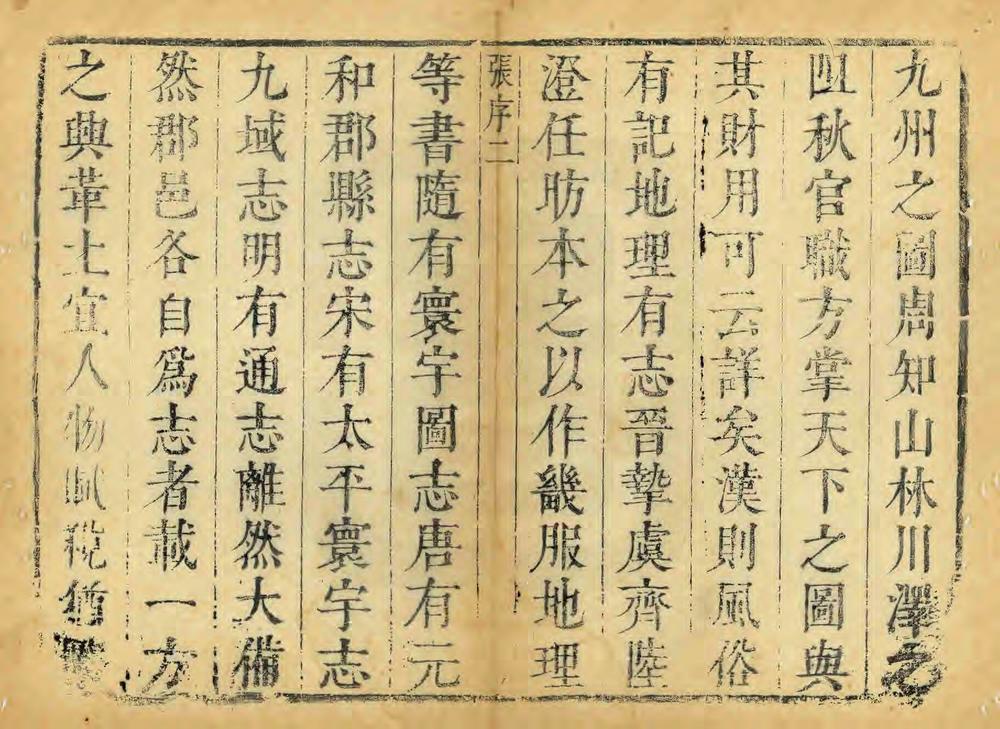 九州之圖周知山林川澤之
阻秋官職方掌天下之圖與
其財用可云詳矣漢則風俗
有記地理有志晉摯虞齊陸
澄任昉本之以作畿服地理
張序二
等書隨有寰宇圖志唐有元
和郡縣志宋有太平寰宇志
九域志明有通志離然大備
然郡邑各自爲志者載一方
之興革土宜人物賦稅猶